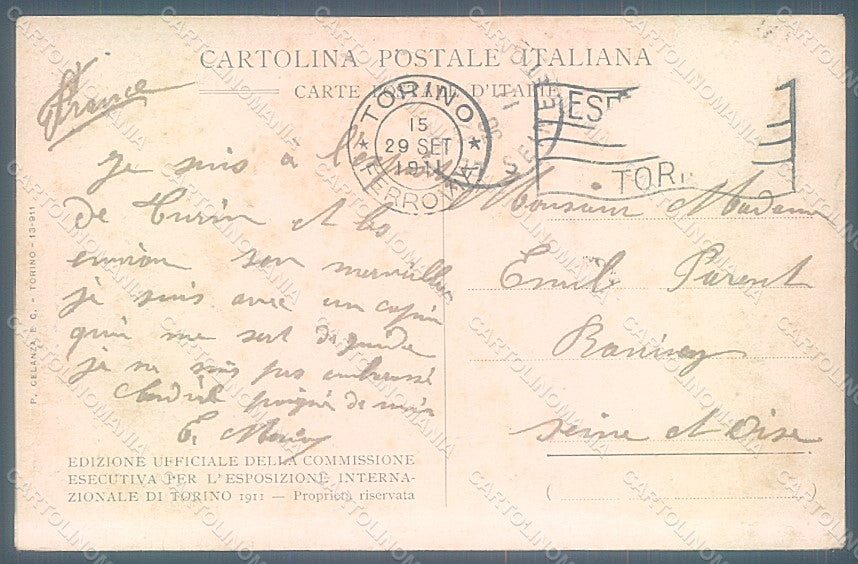 CARTOLINA POSTALE ITALIANA
CARTE POSTALE D'ITALIE
France
TORINO
15
29 SET
1911
FERROVIA
ESP
TORI
SEINE
Je suis à l'
de Turin et les
environ son merveilleux
je suis avec un copin
quil me sert de guide
je ne suis pas embarassé
Cordial poigné de main
E.
Monsieur Madame
Emile Parent
Seine et Oise
P. CELANZA E C. - TORINO - 13-911
EDIZIONE UFFICIALE DELLA COMMISSIONE
ESECUTIVA PER L'ESPOSIZIONE INTERNA-
ZIONALE DI TORINO 1911 — Proprietà riservata
CARTOLINOMANIA